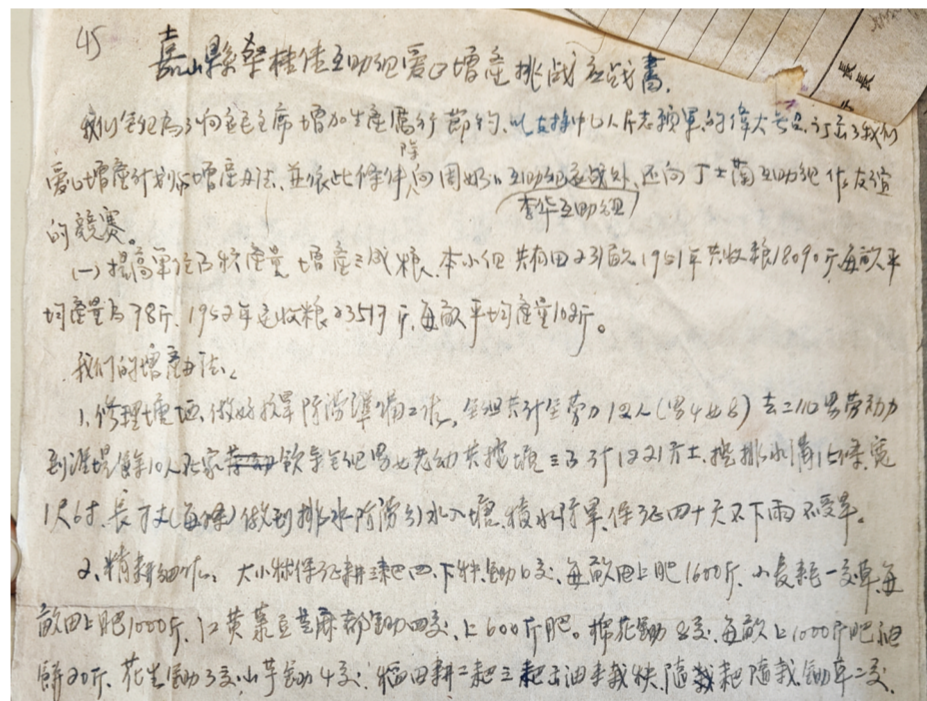 45
嘉山縣桑桂佳互助組爱囯增產挑战应战書.
我们全组為了响应毛主席增加生產厲行節约.以支持中囯人民志愿軍的偉大号召.订出了我们
爱囯增產计划与增產办法、並依此條件除向周如以互助组应战外、还向丁士蘭互助组作友谊
李华互助组
的競賽。
(一)提高單位面積產量增產三成粮、本小组共有田231畝1951年共收粮18090斤每畝平
均產量為78斤.1952年完收粮23517斤.每畝平均產量102斤。
我们的增產办法、
1.修理塘垣、做好抗旱防澇準備工作。全组共计全劳力12人(男4女8)去二個男劳动力
到淮堤餘10人在家 全组男女老幼共挖塘三面计1221方土.挖排水溝15條寬
1尺6寸.長 丈(每條)做到排水防澇引水入塘.積水防旱.保证四十天不下雨不受旱。
2、精耕细作:大小秋保证耕三耙四.下秋.锄6交.每畝田上肥1600斤.小麦耗一交草每
畝田上肥1000斤.江黄菉豆芝麻都锄四交.上600斤肥。棉花锄8交.每畝上1000斤肥油
餅20斤.花生锄3交.山芋锄4交.稻田耕二耙三耙出油来栽秧.隨栽耙隨栽.锄草二交.